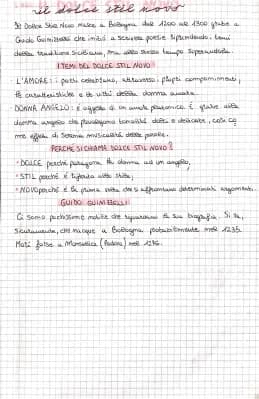 il dolce stil novo
Il Dolce Stil Novo nasce a Bologna dal 1200 al 1300 grazie a
Guido Guinizzelli che iniziò a scrivere poesie riprendendo i temi
della tradizione siciliana, ma allo stesso tempo superandola.
I TEMI DEL DOLCE STIL NOVO
· L'AMORE: i poeti celebrano, attraverso i propri componimenti,
le caratteristiche e le virtù della donna amata.
· DONNA ANGELO: è oggetto di un amore platonico. È grazie alla
donna angelo che paragonano tonalità dolci e delicate, così co
me effetti di serena musicalità delle parole.
PERCHÉ SI CHIAMA DOLCE STIL NOVO?
· DOLCE perché paragona la donna ad un angelo,
· STIL perché è riferito allo stile,
· NOVO perché è la prima volta che si affrontano determinati argomenti.
GUIDO GUINIZELLI
Ci sono pochissime notizie che riguardano la sua biografia. Si sa,
sicuramente, che nacque a Bologna probabilmente nel 1235.
Morì forse a Monselice (Padova) nel 1276.